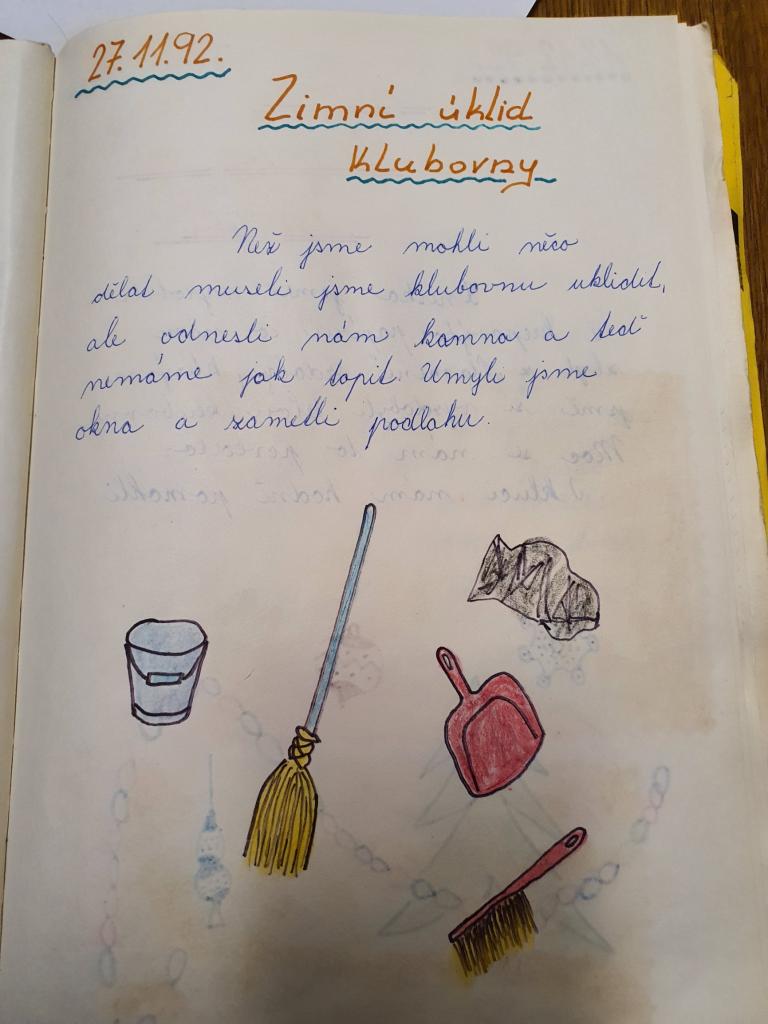 27.11.92.
Zimní úklid
klubovny
Než jsme mohli něco
dělat museli jsme klubovnu uklidit,
ale odnesli nám kamna a teď
nemáme jak topit. Umyli jsme
okna a zametli podlahu.